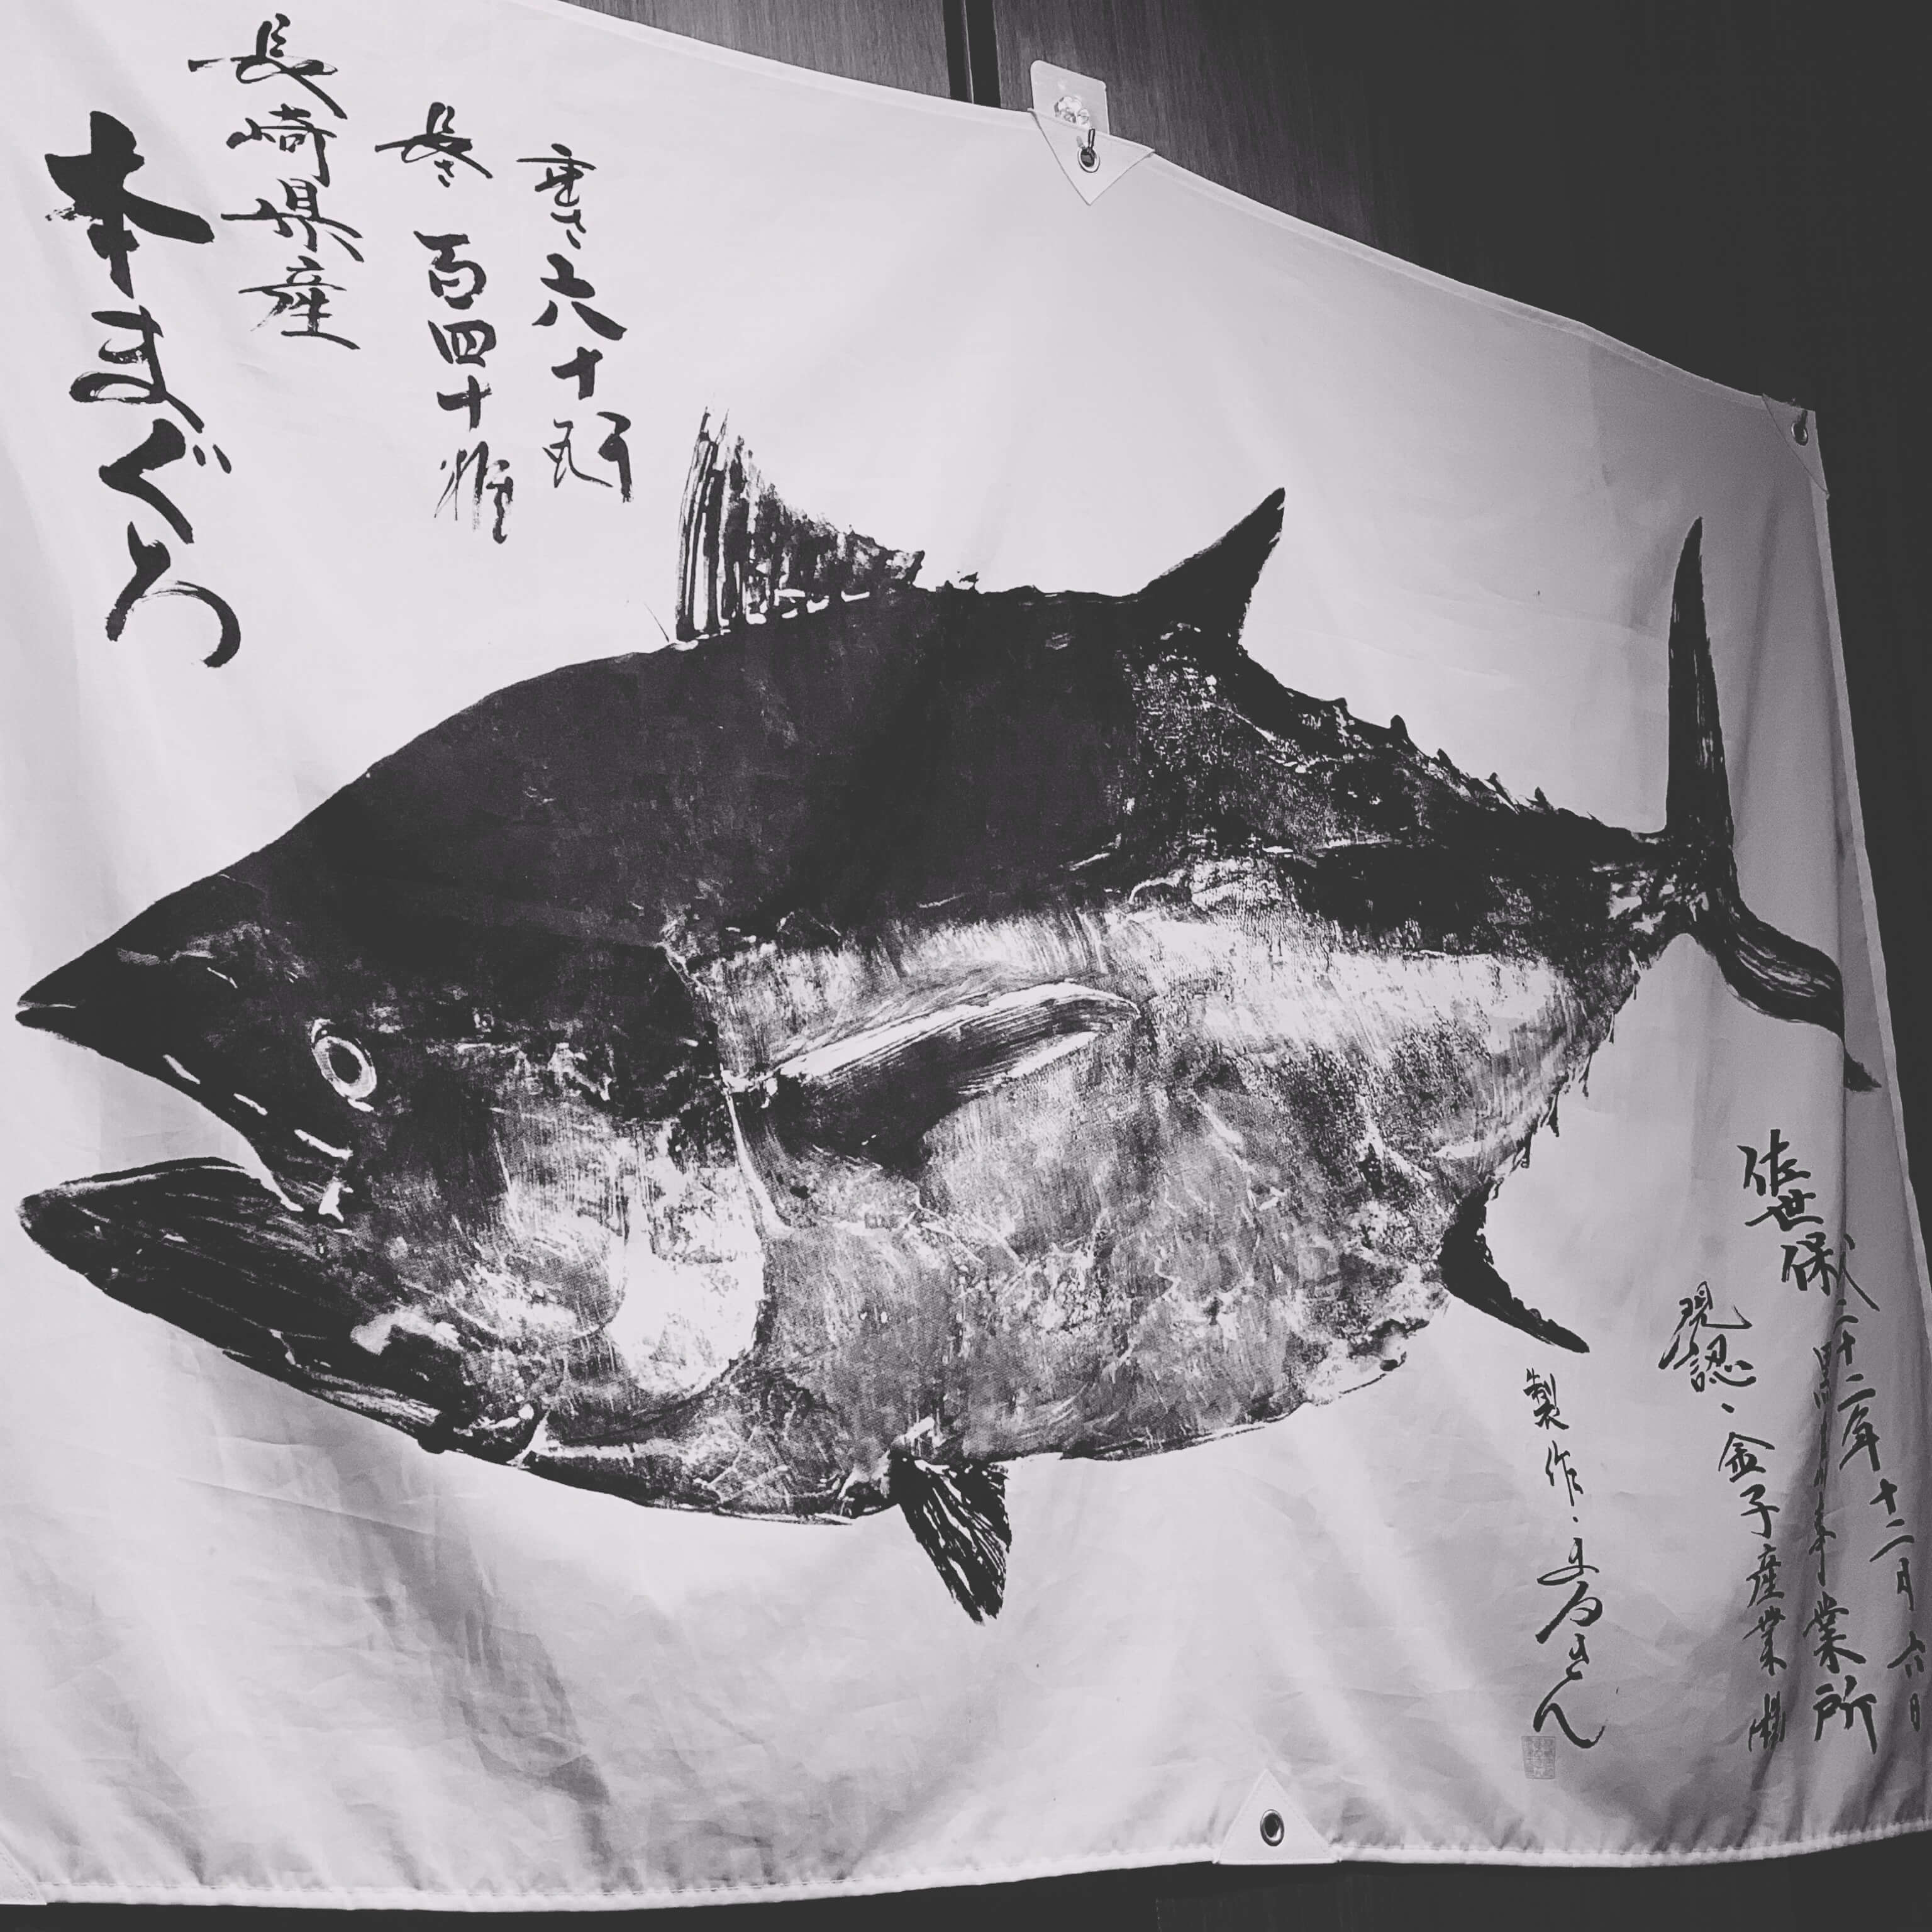 二十二年十二月六日
佐世保 業所
現認、金子産業㈱
製作
重さ六十瓩
長さ百四十糎
長崎県産
本まぐろ